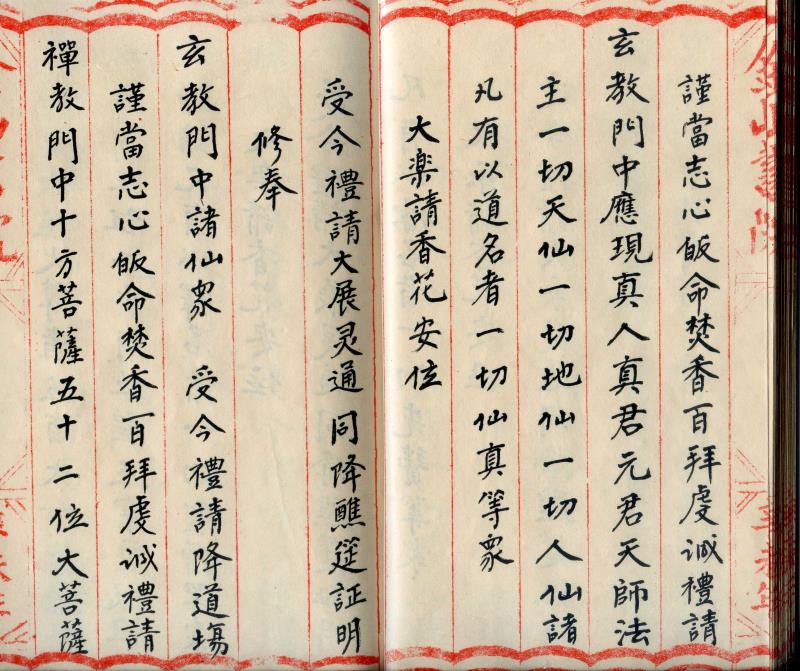 謹當志心皈命焚香百拜虔诚禮請
玄教門中應現真人真君元君天師法
主一切天仙一切地仙一切人仙諸
凡有以道名者一切仙真等眾
大楽請香花安位
受今禮請大展灵通同降醮筵証明
修奉
玄教門中諸仙眾 受今禮請降道塲
謹當志心皈命焚香百拜虔诚禮請
禪教門中十方菩薩五十二位大菩薩